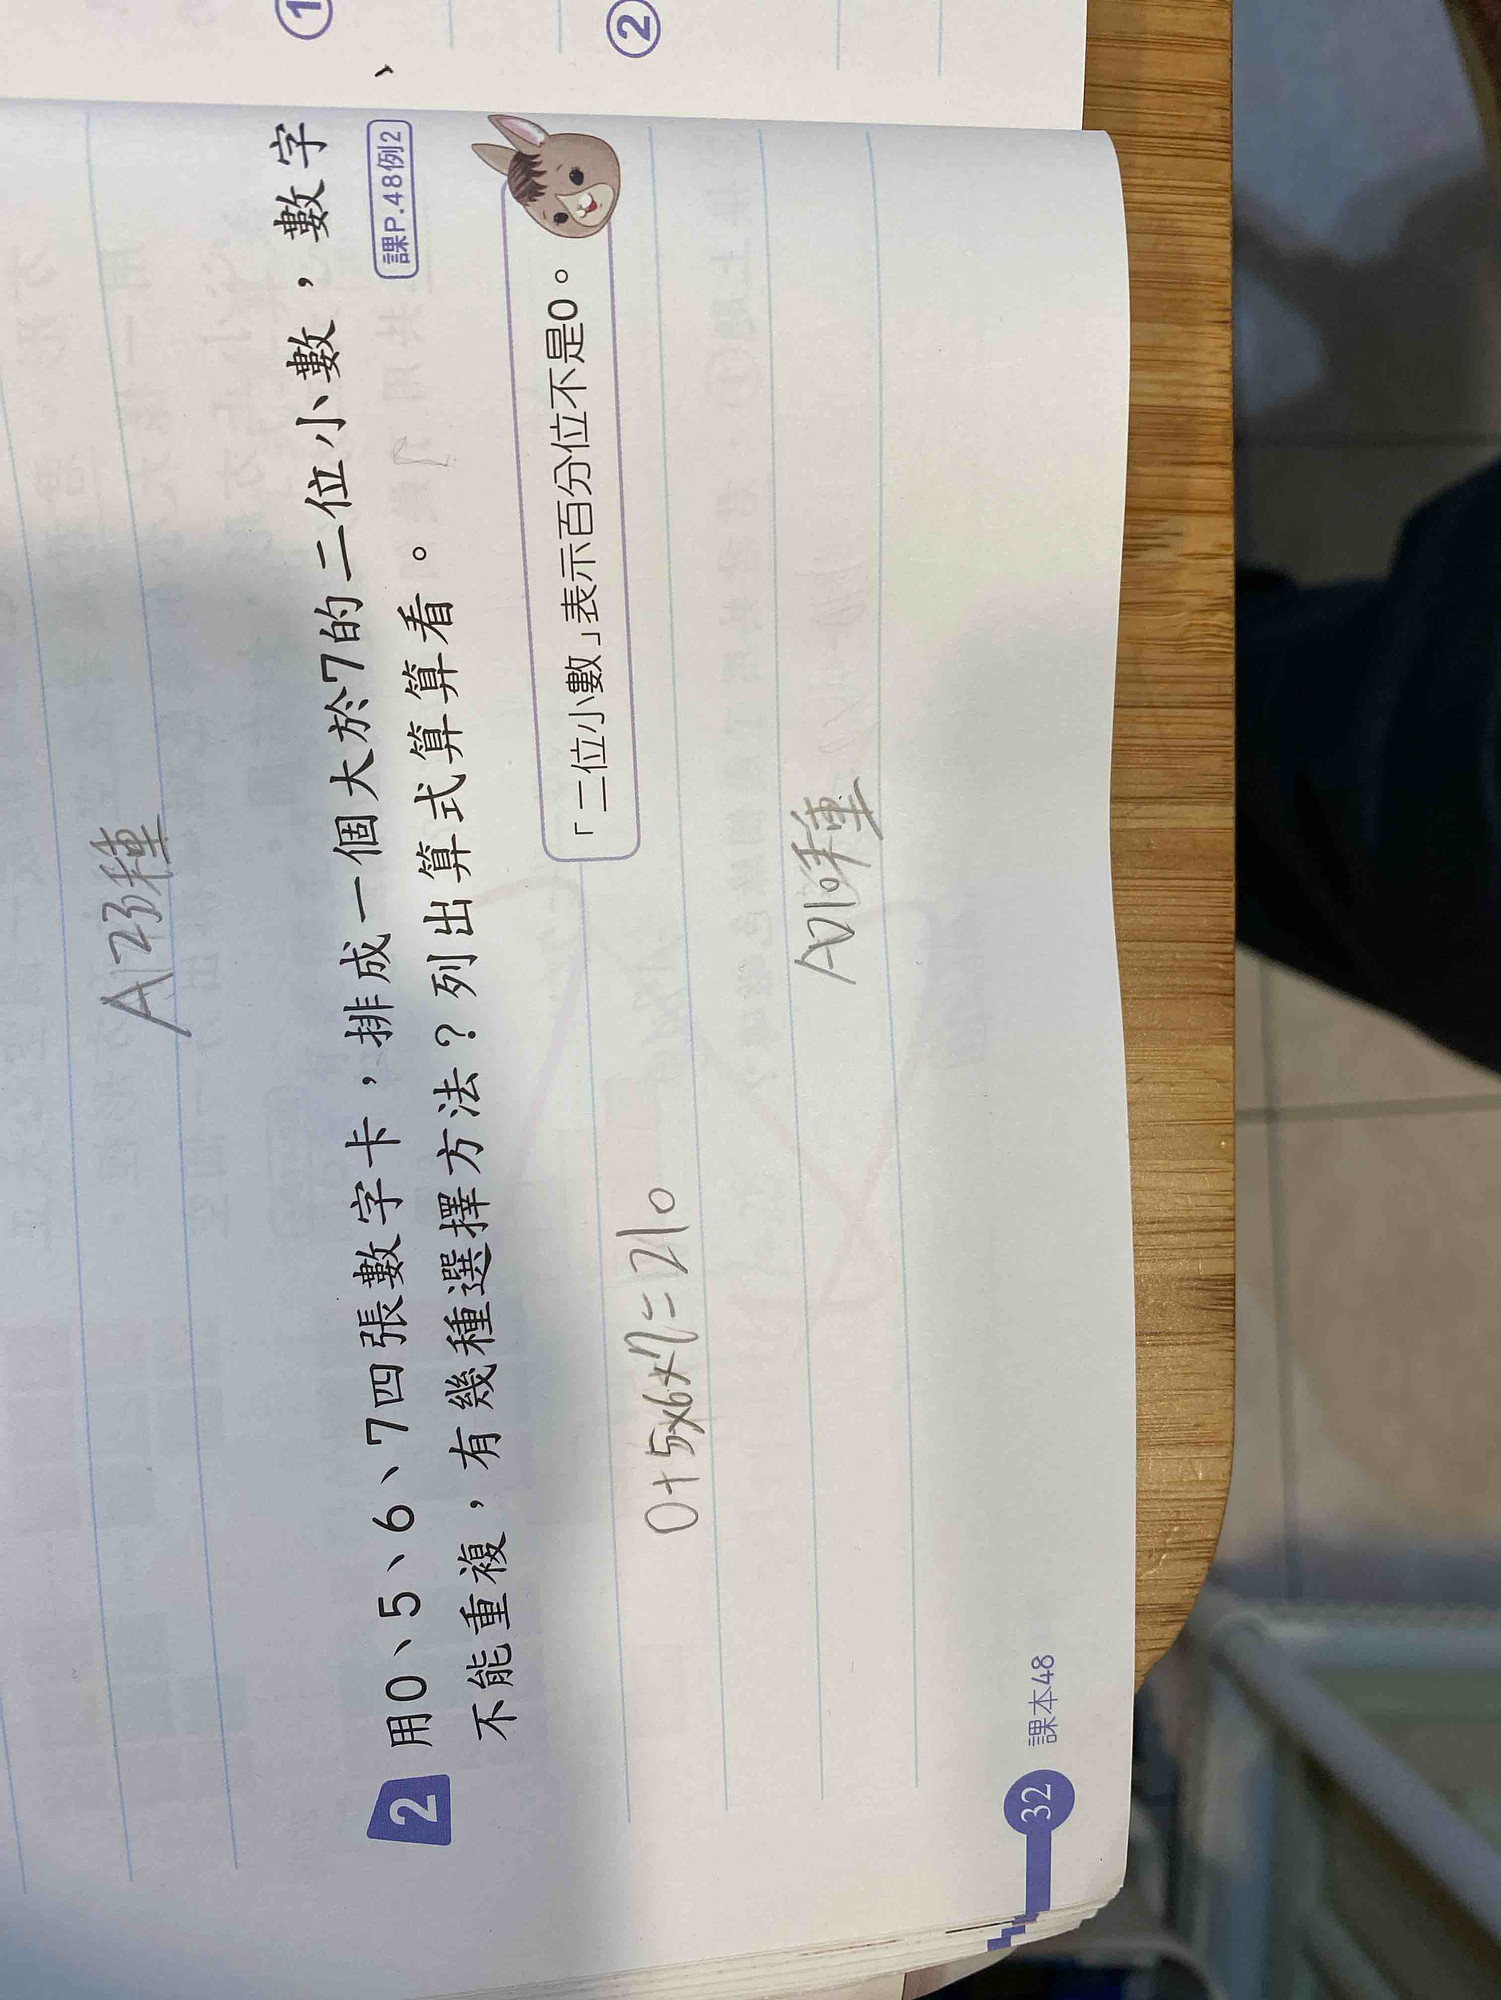 ①
、
②
A 23種
2 用0、5、6、7四張數字卡，排成一個大於7的二位小數，數字
不能重複，有幾種選擇方法？列出算式算算看。
課P.48例2
「二位小數」表示百分位不是0。
0+5×6×7=210
A210種
32 課本48